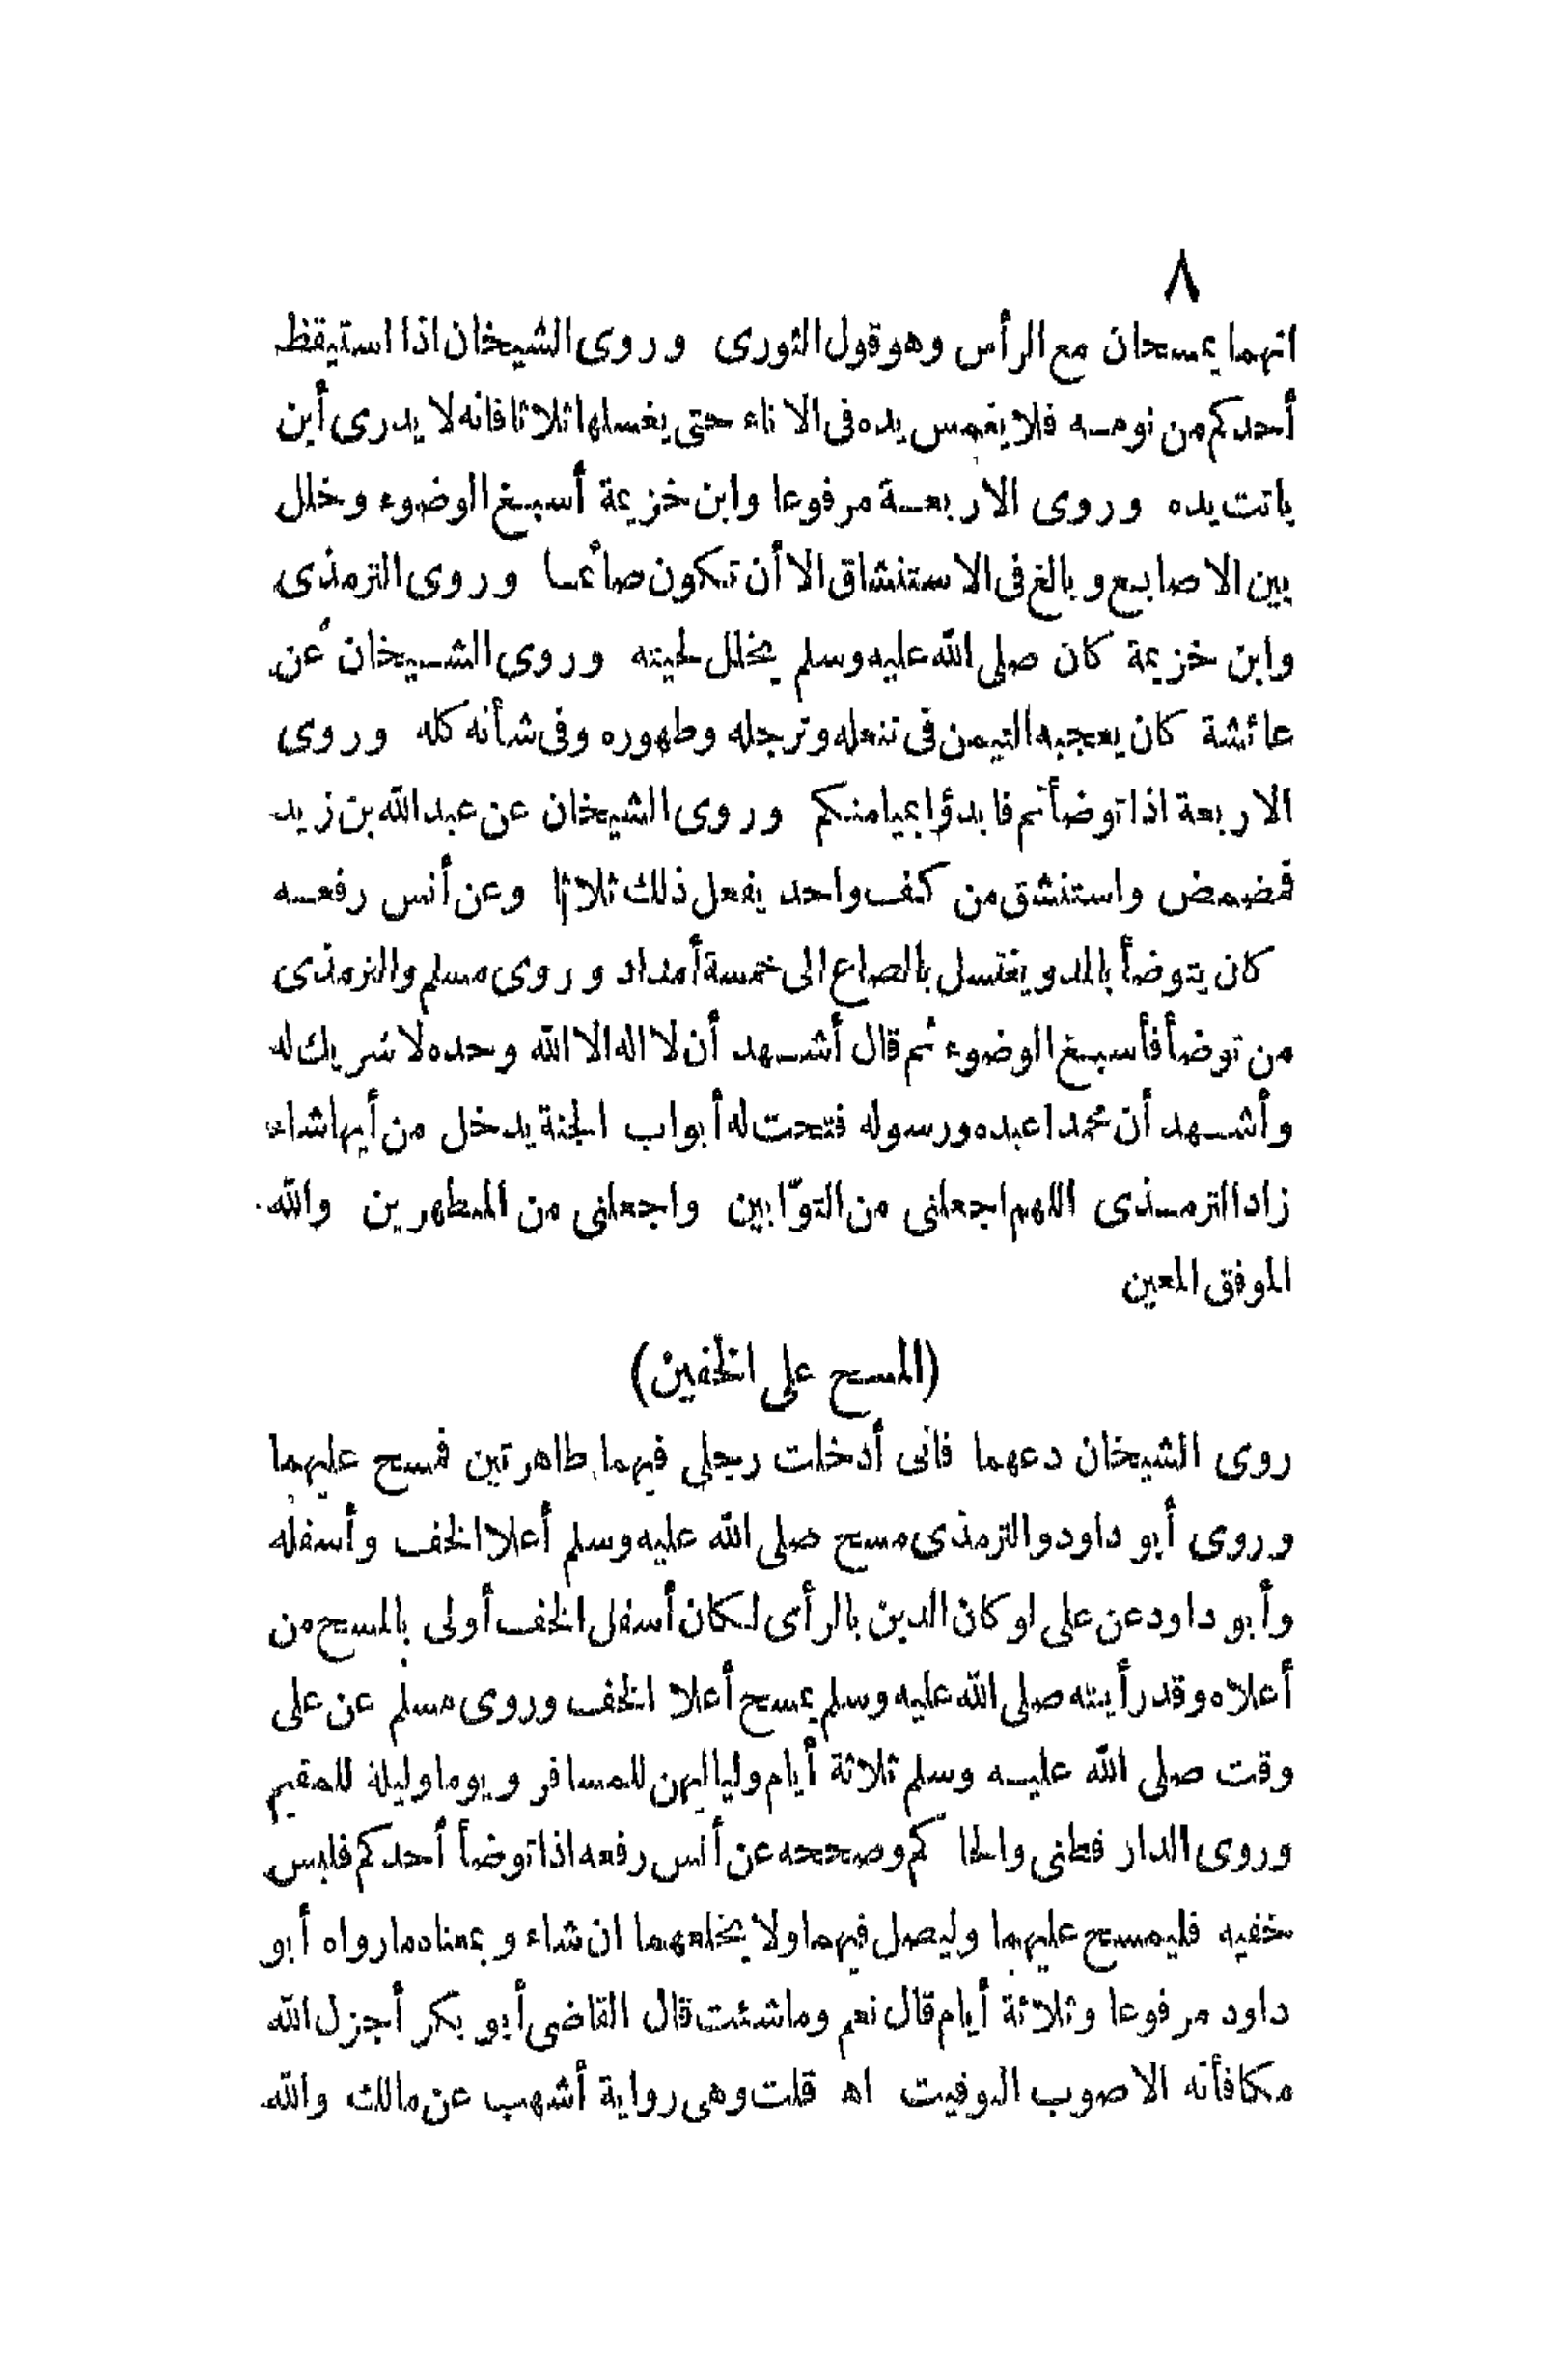 ٨
انهما يمسحان مع الرأس وهو قول الثورى وروى الشيخان اذا استيقظ
أحدكم من نومه فلا يغمس يده فى الاناء حتى يغسلها ثلاثا فانه لا يدرى أين
باتت يده وروى الاربعة مرفوعا وابن خزيمة أسبغ الوضوء وخلل
بين الاصابع وبالغ فى الاستنشاق الا أن تكون صائما وروى الترمذى
وابن خزيمة كان صلى الله عليه وسلم يخلل لحيته وروى الشيخان عن
عائشة كان يعجبه التيمن فى تنعله وترجله وطهوره وفى شأنه كله وروى
الاربعة اذا توضأتم فابدؤا بميامنكم وروى الشيخان عن عبد الله بن زيد
فمضمض واستنشق من كف واحد يفعل ذلك ثلاثا وعن أنس رفعه
كان يتوضأ بالمد ويغتسل بالصاع الى خمسة أمداد وروى مسلم والترمذى
من توضأ فأسبغ الوضوء ثم قال أشهد أن لا اله الا الله وحده لا شريك له
وأشهد أن محمدا عبده ورسوله فتحت له أبواب الجنة يدخل من أيها شاء
زاد الترمذى اللهم اجعلنى من التوّابين واجعلنى من المطهرين والله
الموفق المعين
(المسح على الخفين)
روى الشيخان دعهما فانى أدخلت رجلى فيهما طاهرتين فمسح عليهما
وروى أبو داود والترمذى مسح صلى الله عليه وسلم أعلا الخف وأسفله
وأبو داود عن على لو كان الدين بالرأى لكان أسفل الخف أولى بالمسح من
أعلاه وقد رأيته صلى الله عليه وسلم يمسح أعلا الخف وروى مسلم عن على
وقت صلى الله عليه وسلم ثلاثة أيام ولياليهن للمسافر ويوما وليلة للمقيم
وروى الدار قطنى والحاكم وصححه عن أنس رفعه اذا توضأ أحدكم فلبس
خفيه فليمسح عليهما وليصل فيهما ولا يخلعهما ان شاء وبمعناه ما رواه أبو
داود مرفوعا وثلاثة أيام قال نعم وما شئت قال القاضى أبو بكر أجزل الله
مكافأته الاصوب التوقيت اه قلت وهى رواية أشهب عن مالك والله